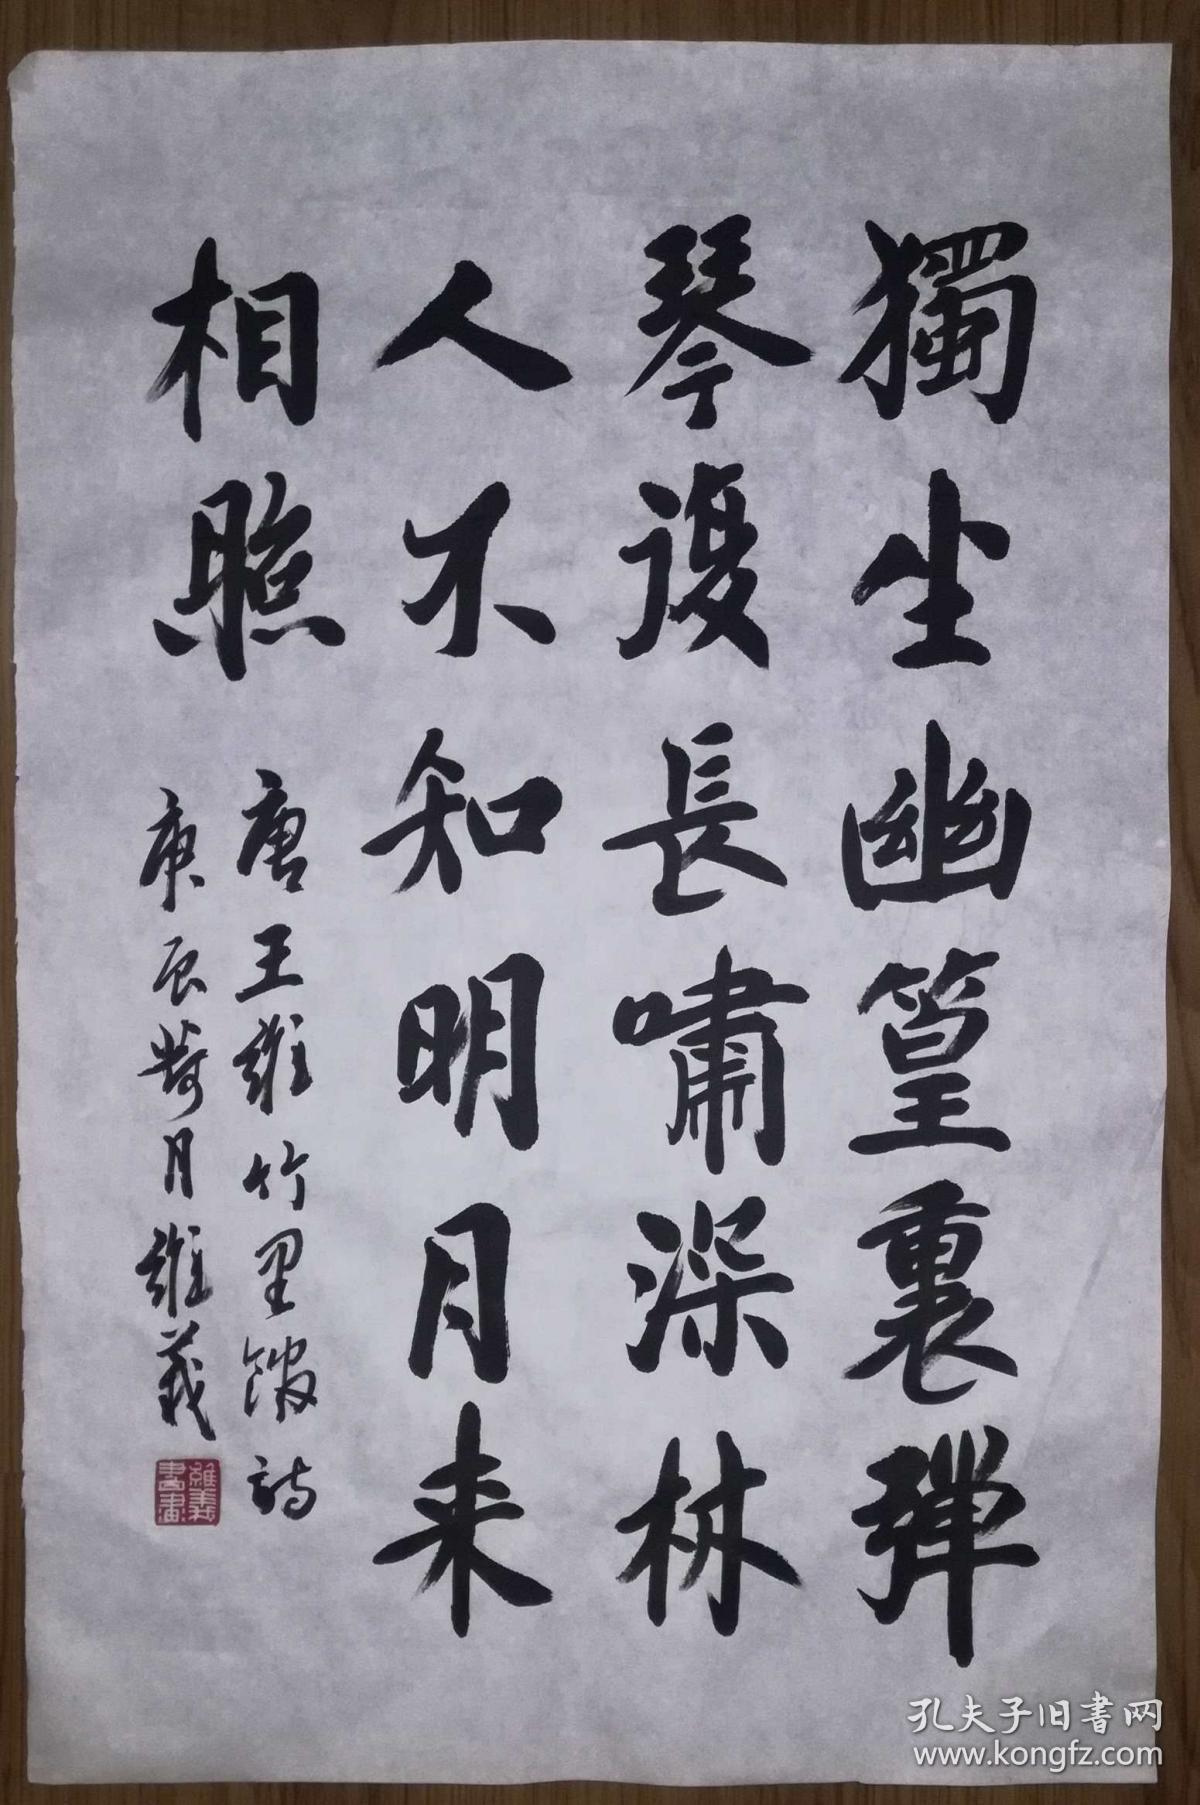 獨坐幽篁裏彈
琴復長嘯深林
人不知明月来
相照
唐王維竹里館詩
庚辰荷月維義
維義書畫
孔夫子旧書网
www.kongfz.com